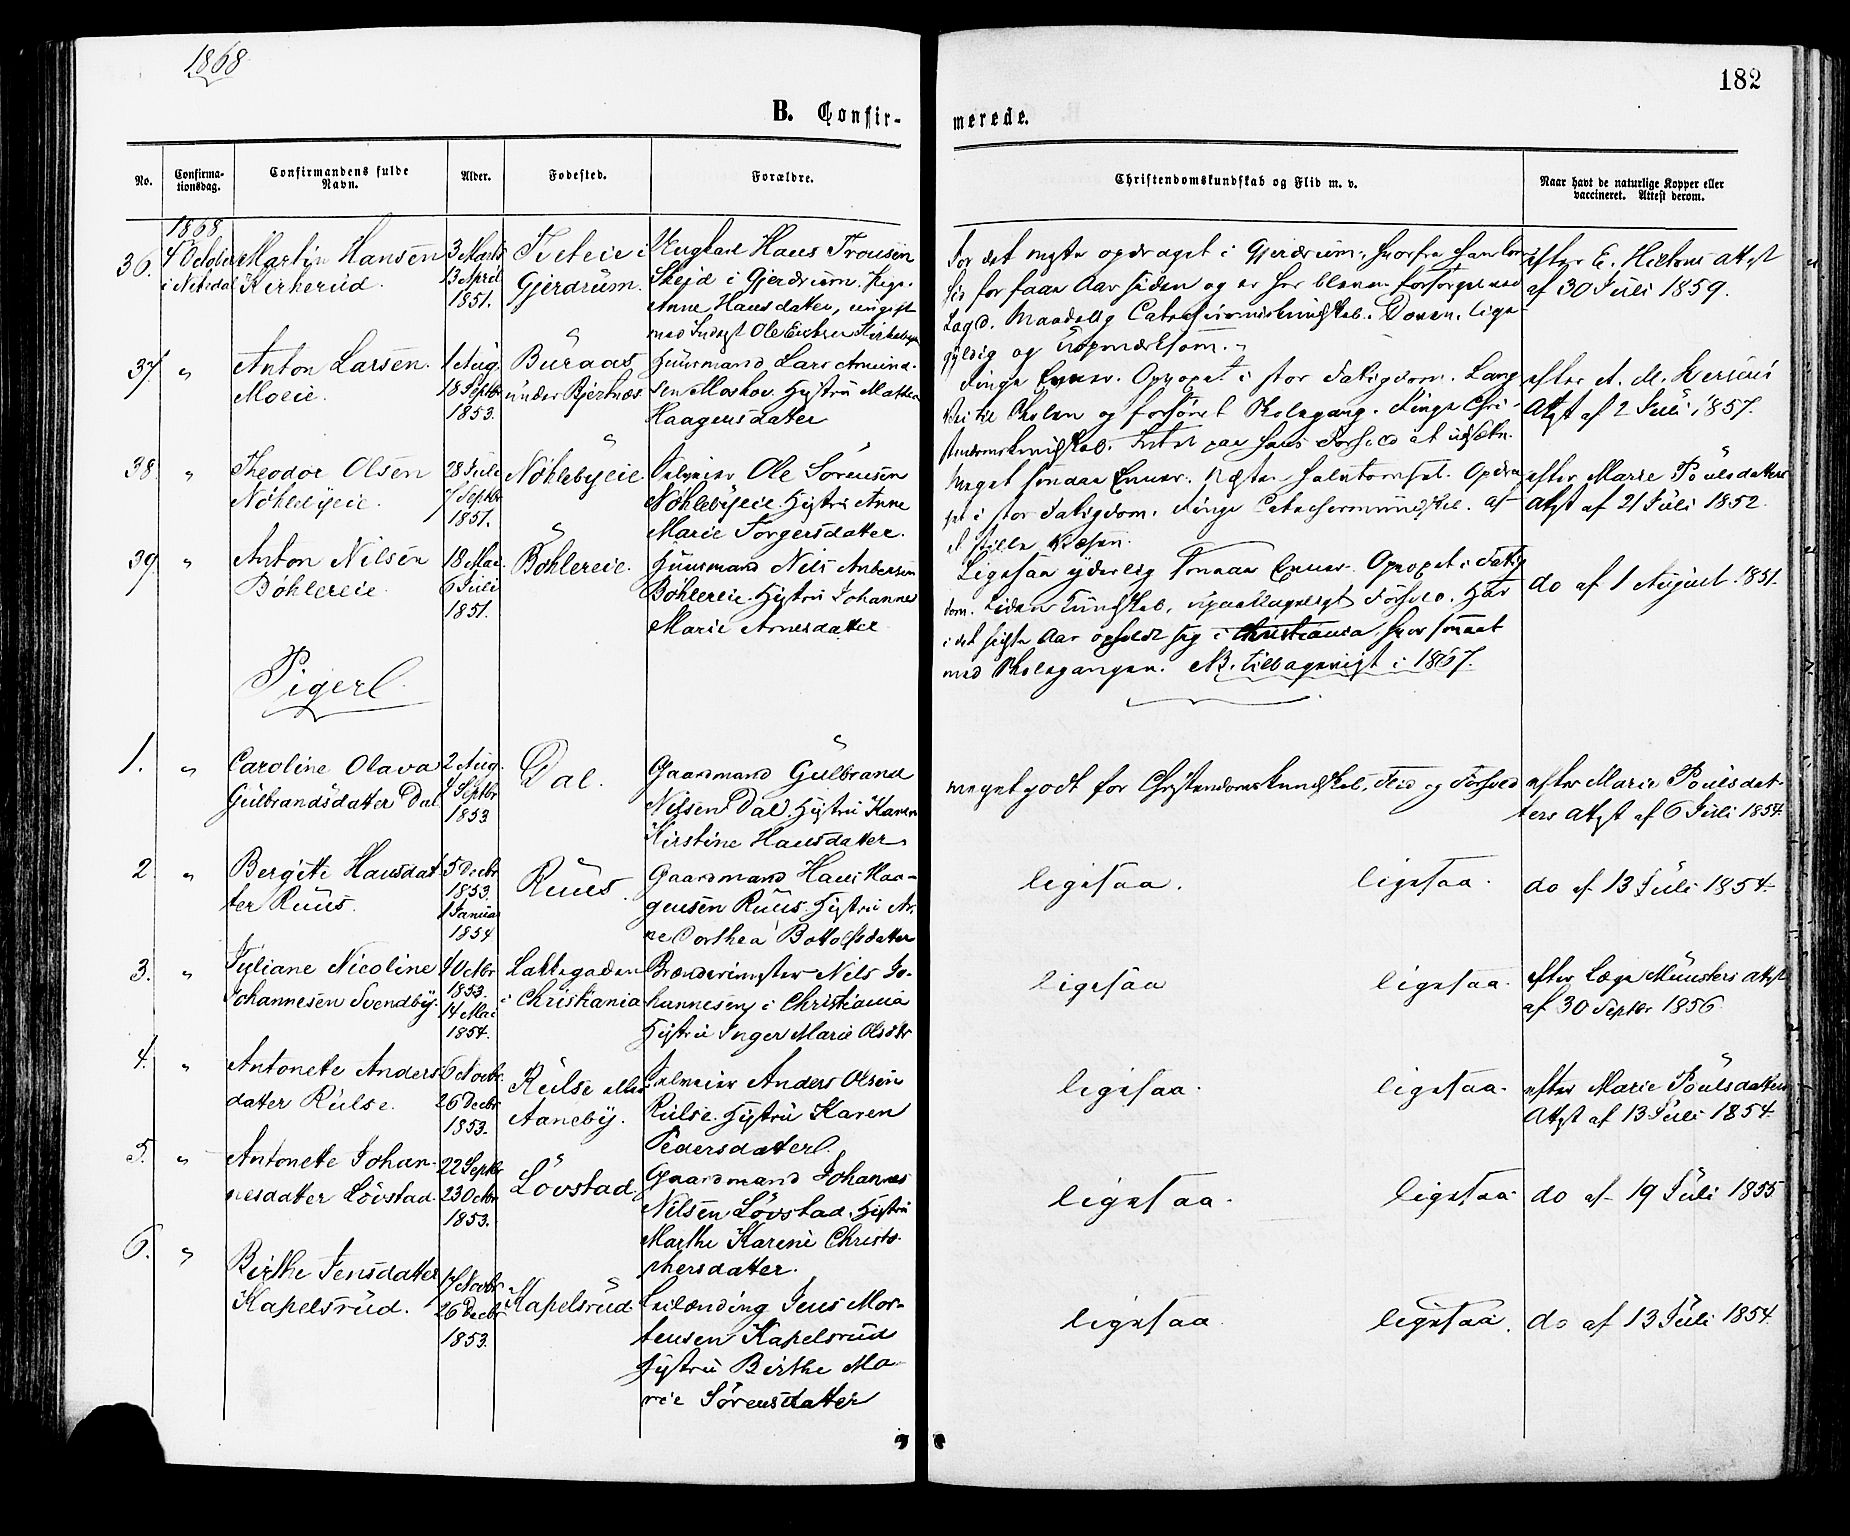 1868
182
B. Confir-
merede.
No.
Confirma-
tionsdag.
Confirmandens fulde
Navn.
Alder.
Fødested.
Forældre.
Christendomskundskab og Flid m. v.
Naar havt de naturlige Kopper eller
vaccineret. Attest derom.
1868.
36. 4 October
i Nitedal
Martin Hansen
Kirkerud.
3 Marts
13 April
1851.
Gjerdrum.
Ungkarl Hans
Skejd i Gjerdrum. Pige
Anne Hansdatter, ungift
med
For det meste opdraget i Gjerdrum, hvorfra han kom
for faae Aar siden og er her bleven forsørget ved
Lægd. Maadelig Catechismuskundskab. Doven, lige-
gyldig og uopmærksom.
efter E. attest
af 30 Juli 1859.
37. "
Anton Larsen
Moeie.
1 Aug.
18 Septbr
1853.
Buraas
under Bjertnæs.
Huusmand Lars Amund-
sen Hustru Mathea
Haagensdatter
Ringe Evner. Opvoxet i stor Fattigdom. Lang
Vei til Skolen og forsømt Skolegang. Ringe Chri-
stendomskundskab. Intet paa hans Forhold at udsætte.
efter A. M.
Attest af 2 Juli 1857.
38. "
Theodor Olsen
Nöhlebyeie.
28 Juli
7 Septbr
1851.
Nöhlebyeie.
Ole Sörensen
Nöhlebyeie. Hustru Anne
Marie Torgersdatter.
Meget smaae Evner. Næsten halvtomset. Opdra-
get i stor Fattigdom. Ringe af
et stille Væsen.
efter Marie Poulsdatters
Attest af 21 Juli 1852.
39. "
Anton Nilsen
Böhlereie.
18 Mai
6 Juli
1851.
Böhlereie.
Huusmand Nils Andersen
Böhlereie. Hustru Johanne
Marie Arnesdatter
Ligesaa yderlig smaae Evner. Opvoxet i Fattig-
dom. Liden Kundskab, upaaklageligt Forhold. Har
i det sidste Aar opholdt sig i Christiania, hvor
med Skolegangen. NB. tilbagevist i 1867.
do af 1 August 1851.
Piger
1. "
Caroline Olava
Gulbrandsdatter Dal
2 Aug.
4 Septbr
1853
Dal.
Gaardmand Gulbrand
Nilsen Dal. Hustru Karen
Kirstine Hansdatter
meget godt for Christendomskundskab, Flid og Forhold
efter Marie Poulsdat-
ters Attest af 6 Juli 1854.
2. "
Bergitte Hansdat-
ter Ruus.
5 Decbr
1853.
1 Januar
1854
Ruus.
Gaardmand Hans Haa-
gensen Ruus. Hustru An-
ne Dorthea Bottolfsdatter
ligesaa. ligesaa.
do af 13 Juli 1854.
3. "
Juliane Nicoline
Johannesen Svendby.
4 Octbr
1853.
14 Mai
1854.
Lakkegaden
i Christiania
Brænderimester Nils Jo-
hannesen i Christiania
Hustru Inger Marie Olsdtr
ligesaa ligesaa.
efter Læge Münsters Attest
af 30 Septbr 1856.
4. "
Antonette Anders-
datter Rulse.
6 Novbr
26 Decbr
1853.
Rulse eller
Aaneby.
Anders Olsen
Rulse. Hustru Karen
Pedersdatter.
ligesaa. ligesaa.
efter Marie Poulsdatters
Attest af 13 Juli 1854.
5. "
Antonette Johan-
nesdatter Lövstad.
22 Septbr
23 Octbr
1853.
Lövstad.
Gaardmand Johannes
Nilsen Lövstad. Hustru
Marthe Karine Christo-
phersdatter.
ligesaa. ligesaa.
do af 19 Juli 1855
6. "
Birthe Jensdatter
Kapelsrud.
17 Novbr
26 Decbr
1853.
Kapelsrud.
Leilænding Jens Mor-
tensen Kapelsrud
Hustru Birthe Ma-
rie Sörensdatter
ligesaa ligesaa.
do af 13 Juli 1854.